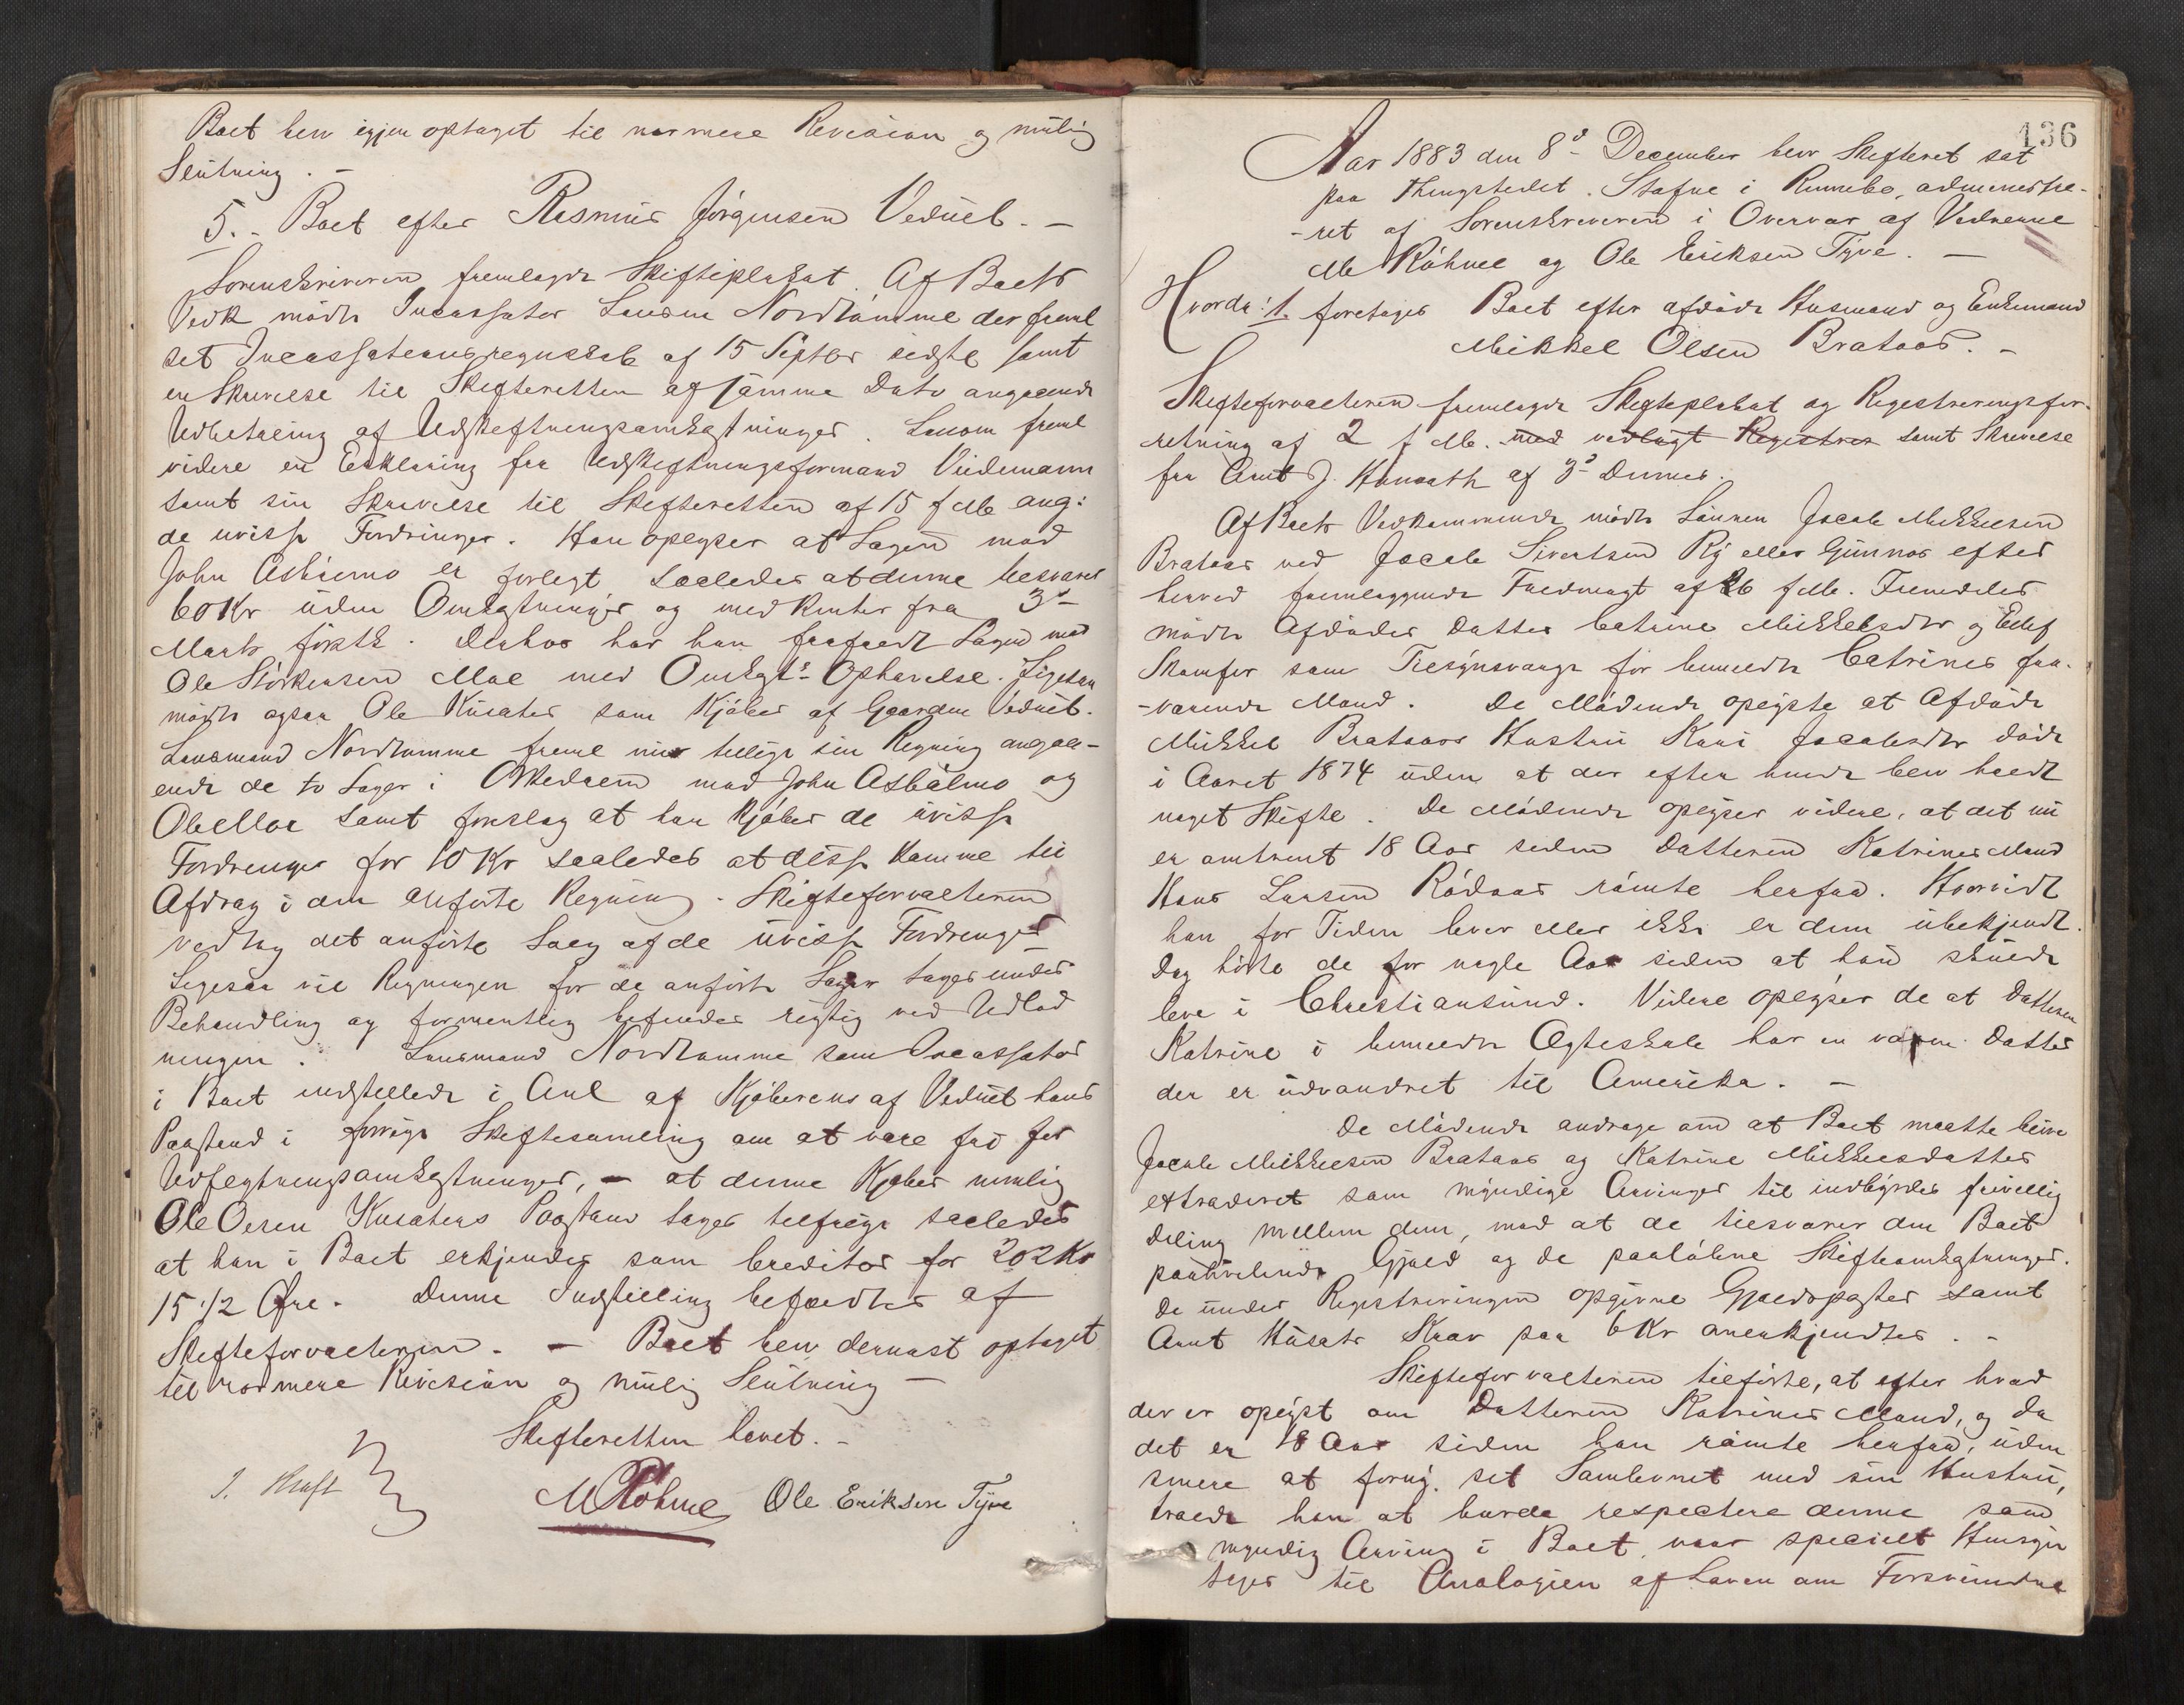 Boet blev igjen optaget til nærmere Revision og mulig
Slutning. –
5. – Boet efter Rasmus Jørgensen Vedüel. –
Sorenskriveren fremlagde Skifteplakat. Af Boets
Vedk mødte Incassator Lensm Nordtømme der freml
set Incassationsregnskab af 15 Septbr sidstl samt
en Skrivelse til Skifteretten af samme Dato angaaende
Udbetaling af Udskiftningsomkostninger. Lensm freml
videre en Erklæring fra Udskiftningsformand Viidemann
samt sin Skrivelse til Skifteretten af 15 f Mb ang:
de uvisse Fordringer. Han oplyser at Sagen mod
John Asbiørmo er forligt saaledes at denne tilsvarer
60 Kr uden Omkostninger og med Renter fra 3die
Marts førstk. Derhos har han frafaldt Sagen mod
Ole Størkersen Moe med Omkgts Ophævelse. Ligesaa
mødte ogsaa Ole Kusater som Kjøber af Gaarden Vedüel.
Lensmand Nordtømme freml nu tillige sin Regning angaa-
ende de to Sager i Orkedalen mod John Asbølmo og
Ole Moe samt forslag at han kjøber de uvisse
Fordringer for 10 Kr saaledes at disse komme til
Afdrag i den anførte Regning. Skifteforvalteren
vedtog det anførte Salg af de uvisse Fordringer
Ligesaa vil Regningen for de anførte Sager tages under
Behandling og formentlig befindes rigtig ved Udlod
ningen. Lensmand Nordtømme som Incassator
i Boet indstillede i Anl af Kjøberens af Vedüel hans
Paastand i forrige Skiftesamling om at være fri for
Udskiftningsomkostninger, – at denne Kjøber nemlig
Ole Olsen Kusaters Paastand tages tilfølge saaledes
at han i Boet erkjendes som Creditor for 202 Kr
15 1/2 Øre. Denne Indstilling bifaldtes af
Skifteforvalteren. – Boet blev dernæst optaget
til nærmere Revision og mulig Slutning –
Skifteretten hævet. –
J. Kraft
M Røhme Ole Eriksen Tyve
136
Aar 1883 den 8de December blev Skifteret sat
paa Thingstedet Stafne i Rennebo, administre-
-ret af Sorenskriveren i Overvær af Vidnerne
M Røhme og Ole Eriksen Tyve. –
Hvorda: 1. foretages Boet efter afdøde Husmand og Enkemand
Mikkel Olsen Brataas. –
Skifteforvalteren fremlagde Skifteplakat og Registreringsfor-
retning af 2 f Mb. med vedlagt Registrer samt Skrivelse
fra Arnt J. Havsath af 3die Dennes.
Af Boets Vedkommende mødte Sønnen Jacob Mikkelsen
Brataas ved Jacob Sivertsen Ry eller Gunnes efter
herved fremlæggende Fuldmagt af 26 f Mb. Fremdeles
mødte Afdødes Datter Catrine Mikkelsdtr og Ellef
Skamfer som Tilsynsværge for bemeldte Catrines fra-
-værende Mand. De Mødende oplyste at Afdøde
Mikkel Brataas Hustru Kari Jacobsdtr døde
i Aaret 1874 uden at der efter hende blev holdt
noget Skifte. De Mødende oplyser videre, at det nu
er omtrent 18 Aar siden Datteren Katrines Mand
Hans Larsen Rødaas rømte herfra. Hvorvidt
han for Tiden lever eller ikke er dem ubekjendt.
Dog hørte de for nogle Aar siden at han skulde
leve i Christiansund. Videre oplyser de at Datteren
Katrine i bemeldte Ægteskab har en voxen Datter
der er udvandret til Amerika. –
De Mødende androge om at Boet maatte blive
Jacob Mikkelsen Brataas og Katrine Mikkelsdatter
extraderet som myndige Arvinger til indbyrdes frivillig
deling mellem dem, mod at de tilsvarer den Boet
paahvilende Gjæld og de paaløbne Skifteomkostninger.
De under Registreringen opgivne Gjældsposter samt
Arnt Husats Krav paa 6 Kr anerkjendtes. –
Skifteforvalteren tilførte, at efter hvad
der er oplyst om Datteren Katrines Mand, og da
det er 18 Aar siden han rømte herfra, uden
senere at forny set Samlevnet med sin Hustru,
troede han at burde respectere denne som
myndig Arving i Boet, naar specielt Hensyn
tages til Analogien af Loven om Forsvundne